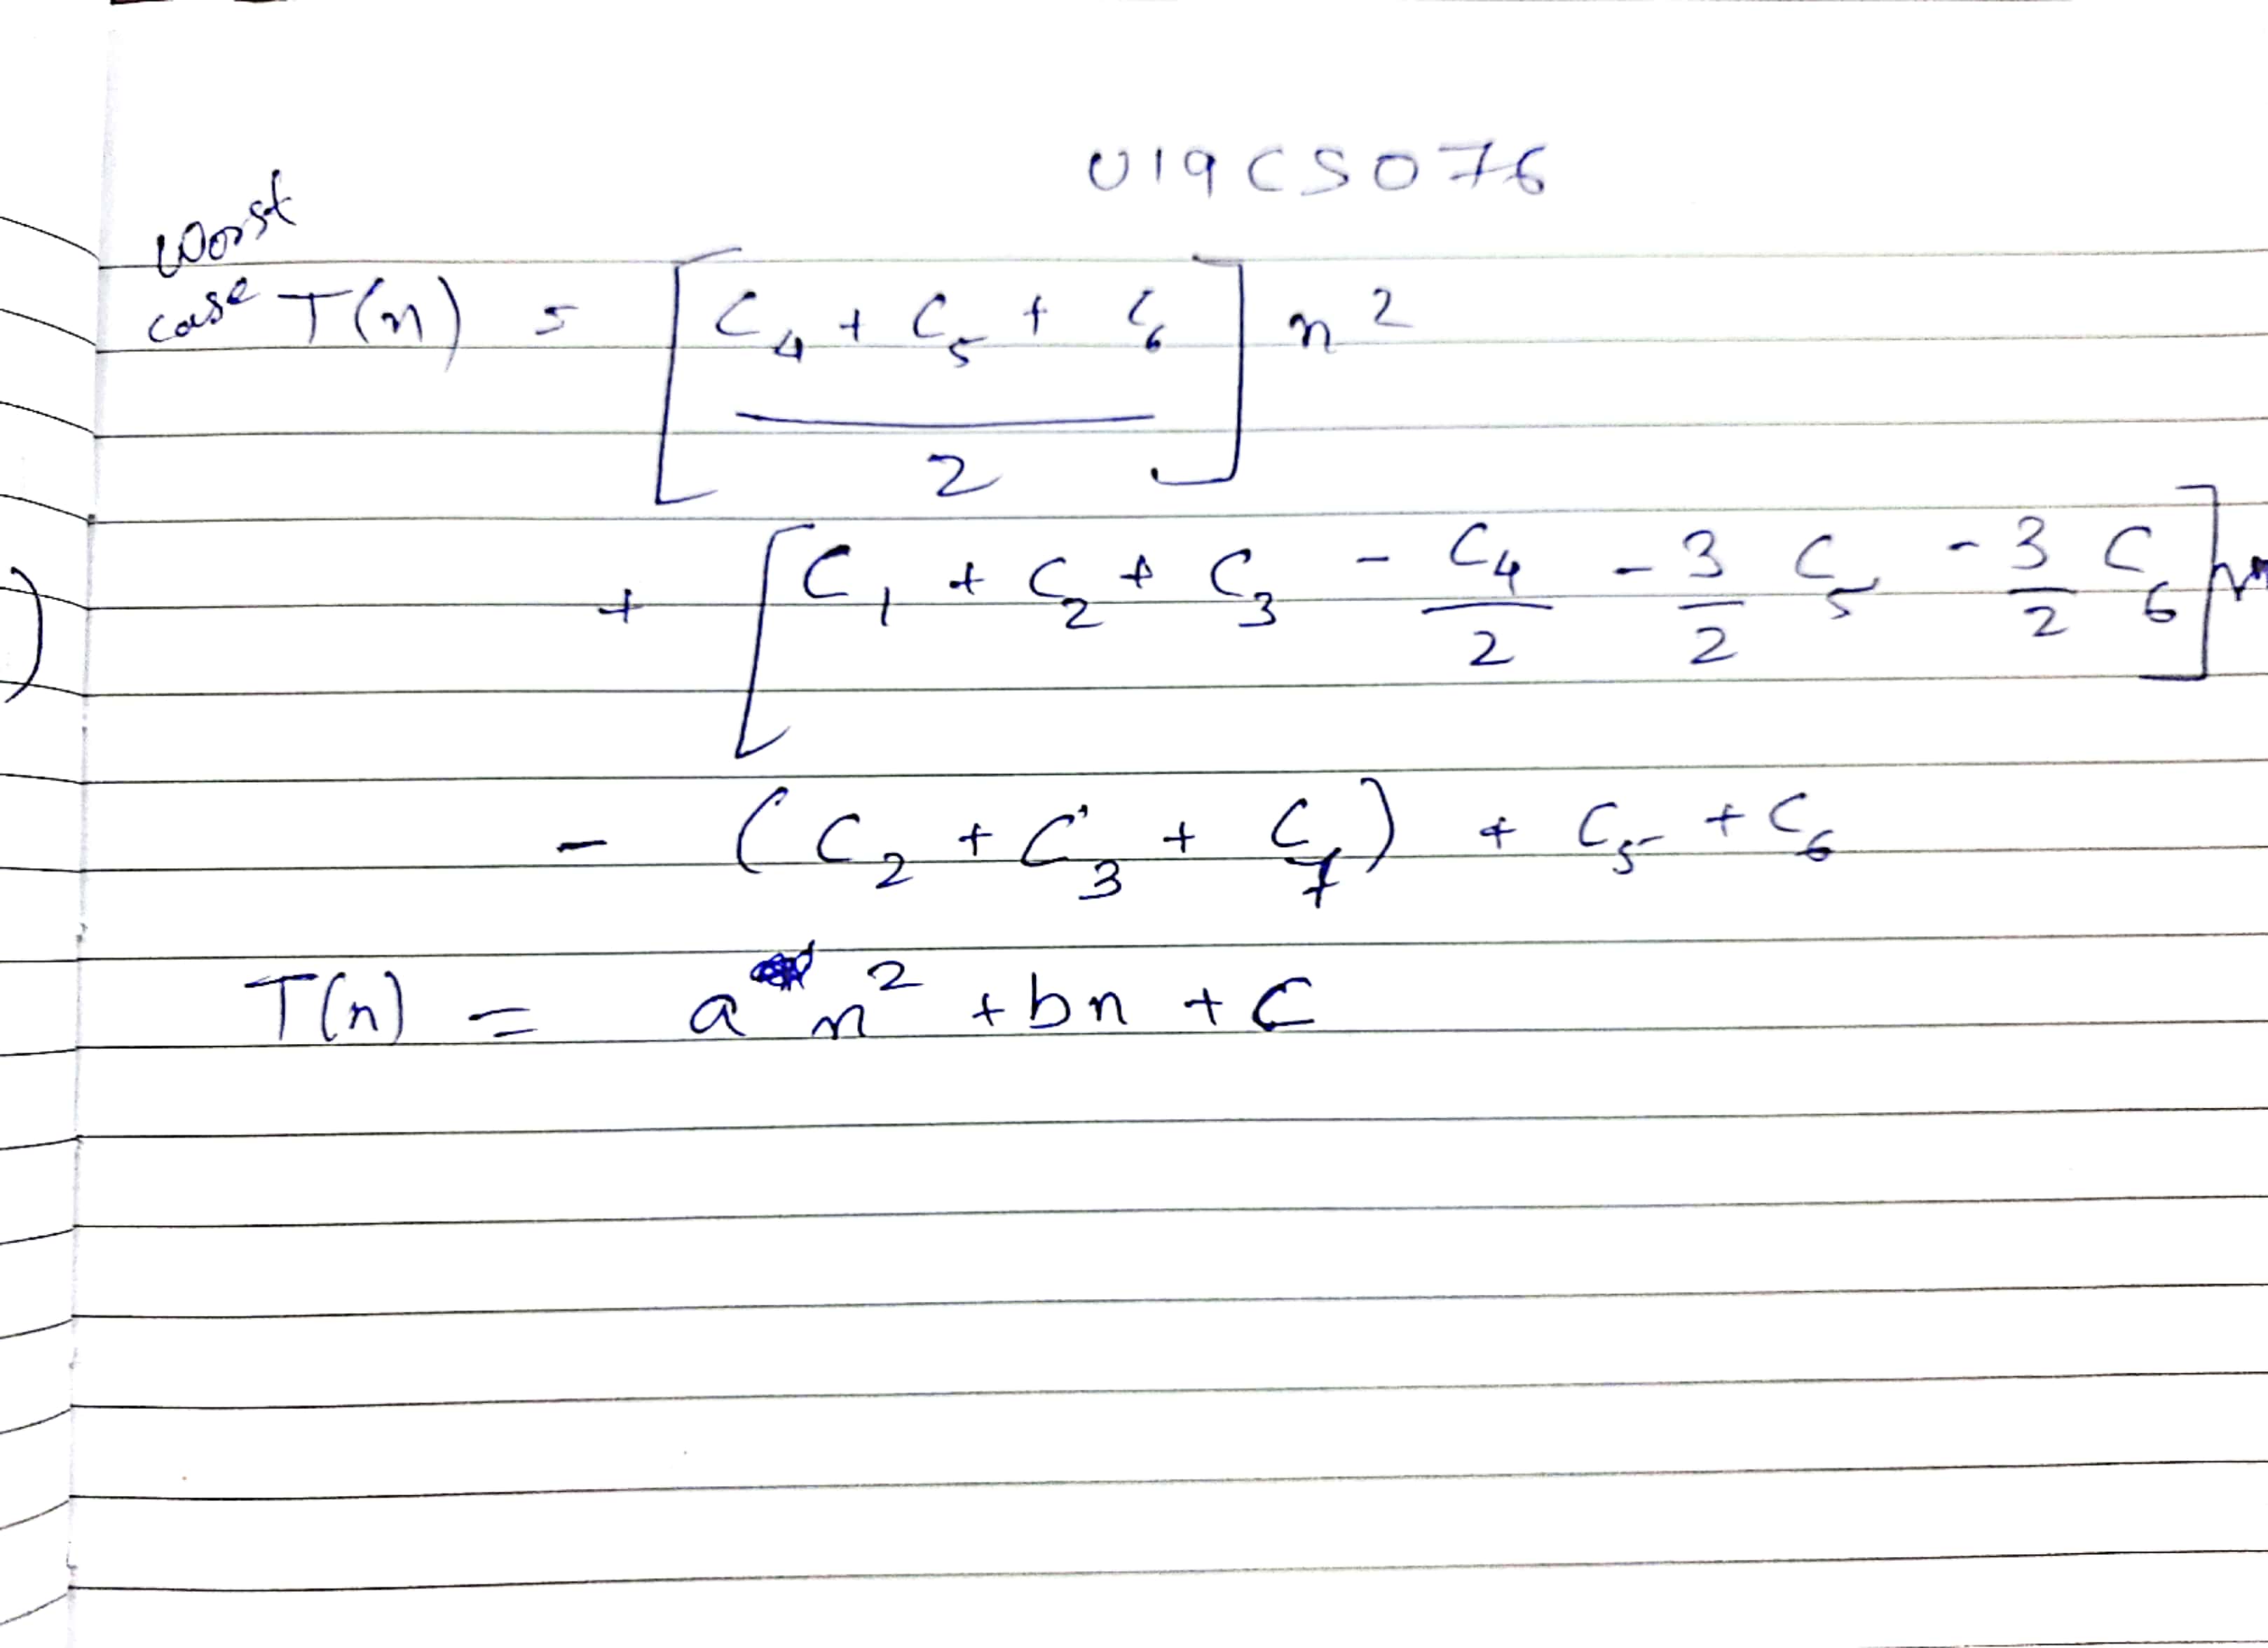 U19CS076
Worst
case T(n) = [ (C₄ + C₅ + C₆) / 2 ] n²
+ [ C₁ + C₂ + C₃ - C₄/2 - 3/2 C₅ - 3/2 C₆ ] n
- ( C₂ + C₃ + C₇ ) + C₅ + C₆
T(n) = a n² + bn + C